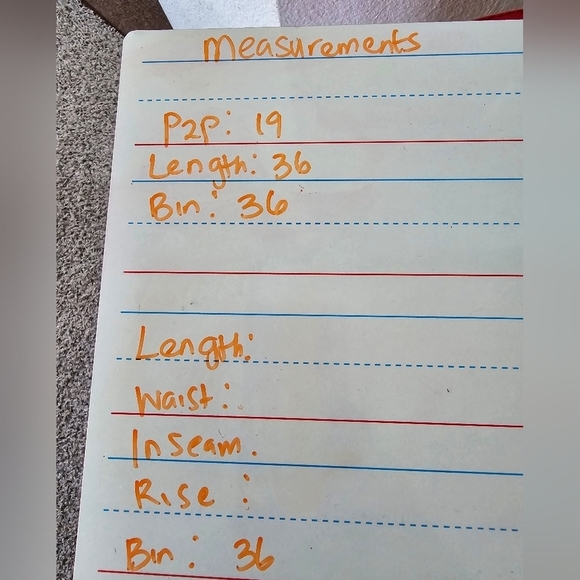 measurements
P2P: 19
Length: 36
Bin: 36
Length:
Waist:
Inseam.
Rise:
Bin: 36